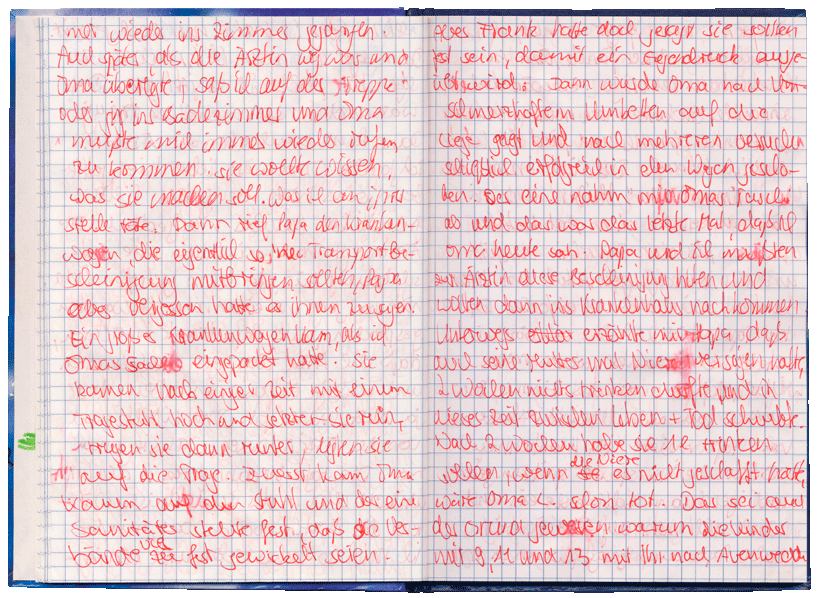 mal wieder ins Zimmer gelaufen.
Auch später als die Ärztin weg war und
Oma überlegte, saß ich auf der Treppe
oder ging ins Badezimmer und Oma
mußte mich immer wieder rufen,
zu kommen. Sie wollte wissen,
was sie machen soll. Was ich an ihrer
Stelle täte. Dann rief Papa den Kranken-
wagen, die eigentlich so'ne Transportbe-
scheinigung mitbringen sollten, Papa
aber vergessen hatte es ihnen zu sagen.
Ein großer Krankenwagen kam, als ich
Omas Sachen eingepackt hatte. Sie
kamen nach einger Zeit mit einem
Tragestuhl hoch und setzten sie rein,
trugen sie dann runter, legten sie
auf die Trage. Zuerst kam Oma
kaum auf den Stuhl und der eine
Sanitäter stellte fest, daß die Ver-
bände viel zu fest gewickelt seien.
Aber Frank hatte doch gesagt sie sollten
fest sein, damit ein Gegendruck ausge-
übt wird. Dann wurde Oma nach
schmerzhaftem Umbetten auf die
Liege gelegt und nach mehreren Versuchen
schließlich erfolgreich in den Wagen gescho-
ben. Der eine nahm mir Omas Tasche
ab und das war das letzte Mal, daß ich
Oma heute sah. Papa und ich mußten
zur Ärztin diese Bescheinigung holen und
wollten dann ins Krankenhaus nachkommen.
Unterwegs erzählte mir Papa, daß
weil seine Mutter mal Nierenversagen hatte,
2 Wochen nichts trinken durfte und in
dieser Zeit zwischen Leben + Tod schwebte.
Nach 2 Wochen habe sie 1 l trinken
sollen, wenn die Niere es nicht geschafft hätte,
wäre Oma L. schon tot. Das sei auch
der Grund gewesen warum die Kinder
mit 9, 11 und 13 mit ihr nach Avenwedde